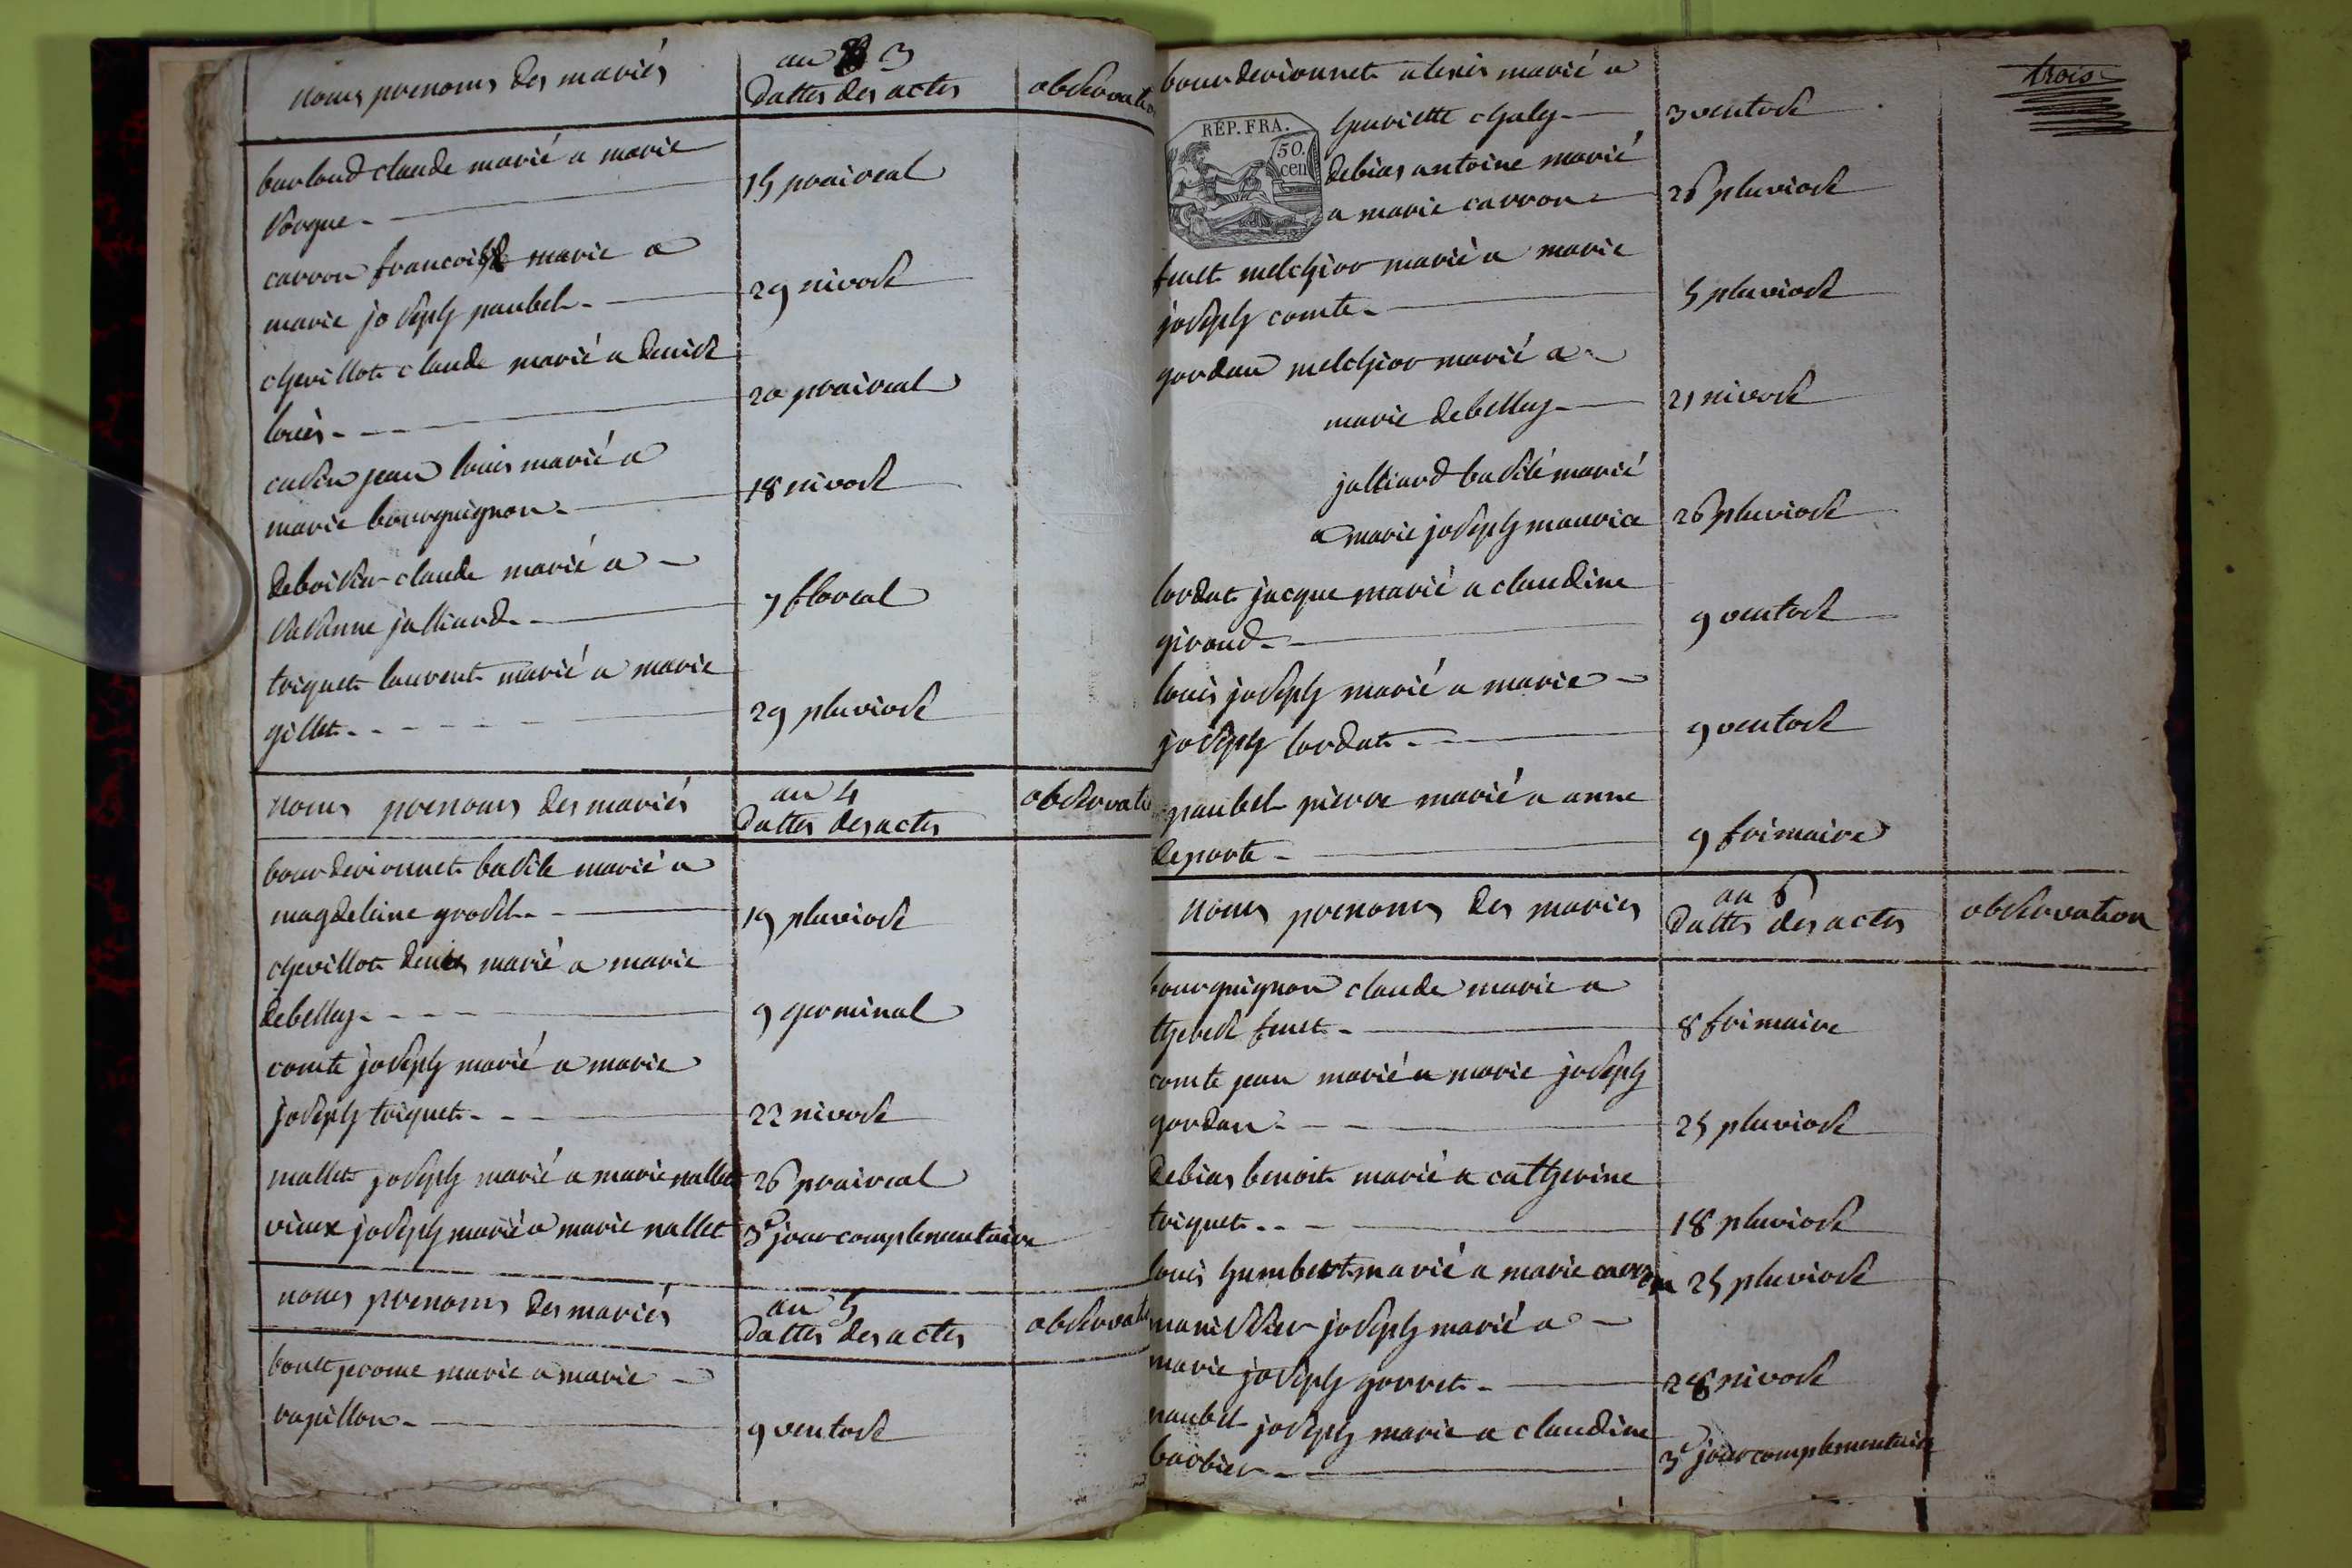 noms prenoms des mariés
an 3
dattes des actes
observati
barloud claude marié a marie
vorgue
15 praireal
carron francois marie a
marie joseph paubel
29 nivose
chevillot claude marié a denise
louis
20 prairial
cusin jean louis marié a
marie bourguignon
18 nivose
deboissieu claude marié a
susanne jalliard
7 floreal
triquet laurent marié a marie
gillet
29 pluviose
noms prenoms des mariés
an 4
dattes des actes
observati
bourderionnet basile marié a
magdeleine grosel
19 pluviose
chevillot denis marié a marie
debelley
9 germinal
comte joseph marié a marie
joseph triquet
22 nivose
mallet joseph marié a marie nallet
26 praireal
vieux joseph marié a marie nallet
3e jour complementaire
noms prenoms des mariés
an 5
dattes des actes
observati
bouet jerome marie a marie
rapillon
9 ventose
trois
bourderionnet alexis marié a
henriette chaley
3 ventose
REP. FRA.
50.
cen
debias antoine marié
a marie carron
26 pluviose
fuet melchior marié a marie
joseph comte
5 pluviose
gordan melchior marié a
marie debelley
21 nivose
jalliard basile marié
a marie joseph maurice
26 pluviose
lordat jacque marié a claudine
giroud
9 ventose
louis joseph marié a marie
joseph lordat
9 ventose
paubel pierre marié a anne
deporte
9 frimaire
noms prenoms des maries
an 6
dattes des actes
observation
bourguignon claude marie a
therese fuet
8 frimaire
comte jean marié a marie joseph
gordan
25 pluviose
debias benoit marié a catherine
triquet
18 pluviose
louis humbert marié a marie carron
25 pluviose
joseph marié a
marie joseph gorret
28 nivose
paubel joseph marie a claudine
barbier
3e jour complementaire